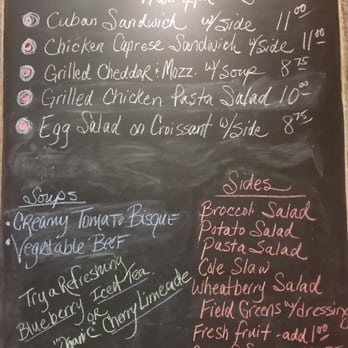 Cuban Sandwich w/side 11 00
Chicken Caprese Sandwich w/side 11 00
Grilled Cheddar & Mozz. w/soup 8 75
Grilled Chicken Pasta Salad 10 00
Egg Salad on Croissant w/side 8 75
Soups
• Creamy Tomato Bisque
• Vegetable Beef
Try a Refreshing
Blueberry Iced Tea.
OR
Cherry Limeade
Sides
Broccoli Salad
Potato Salad
Pasta Salad
Cole Slaw
Wheatberry Salad
Field Greens w/dressing
Fresh fruit - add 1.00